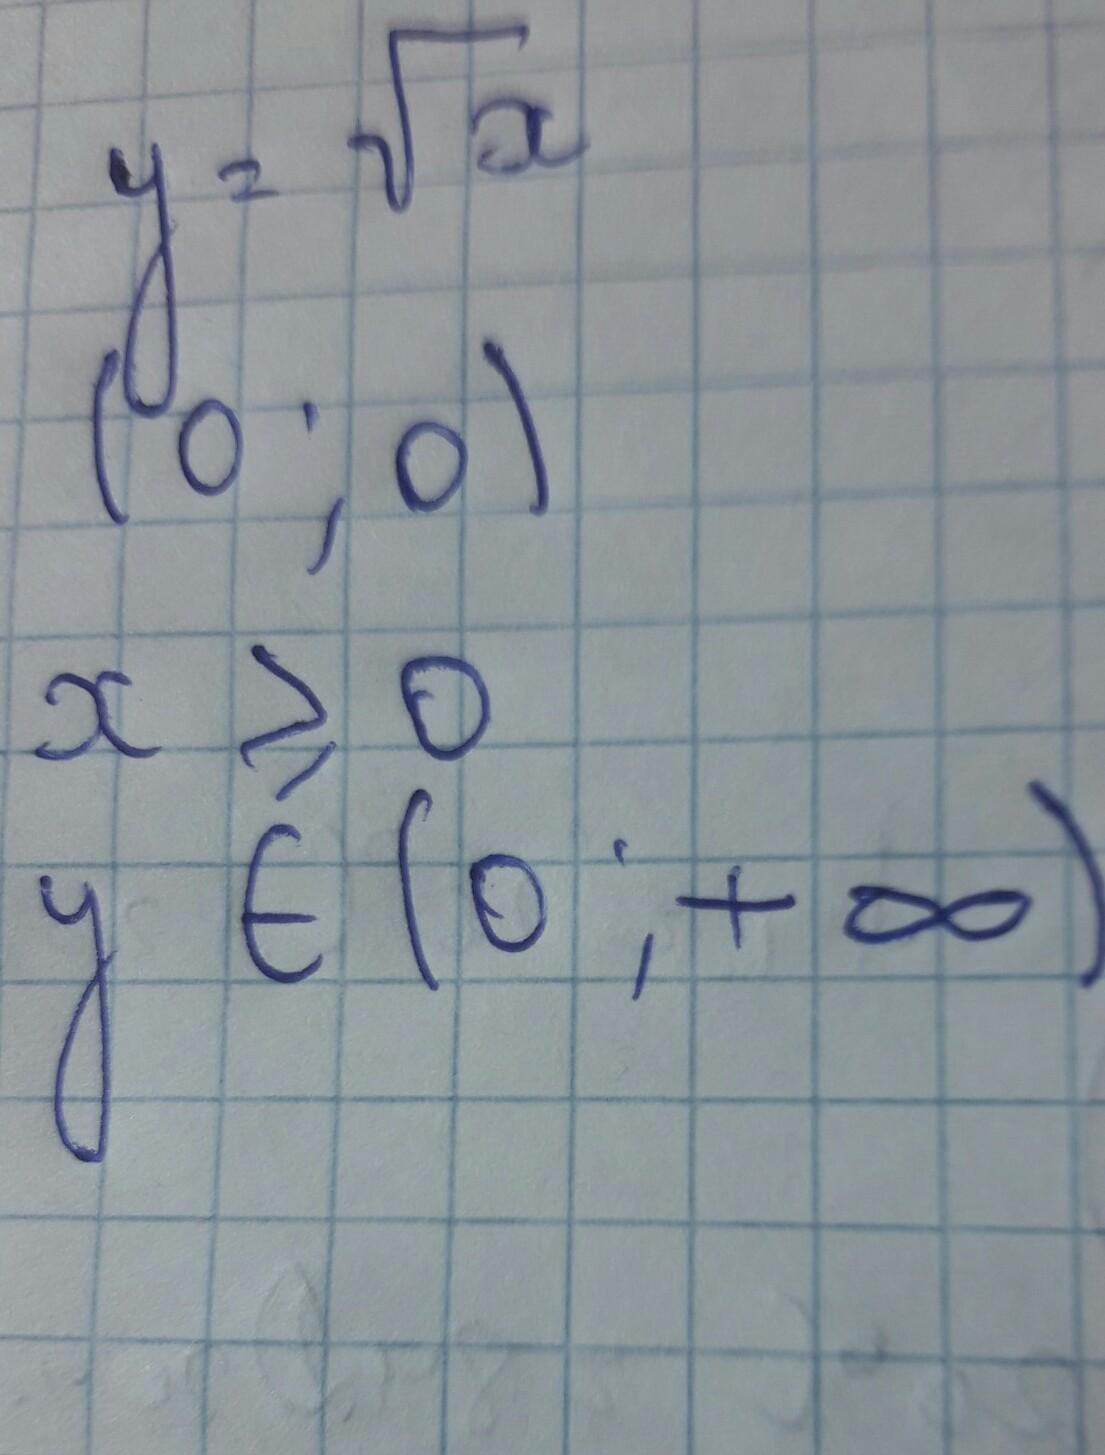 y = √x
(0 ; 0)
x ⩾ 0
y ∈ (0 ; + ∞)